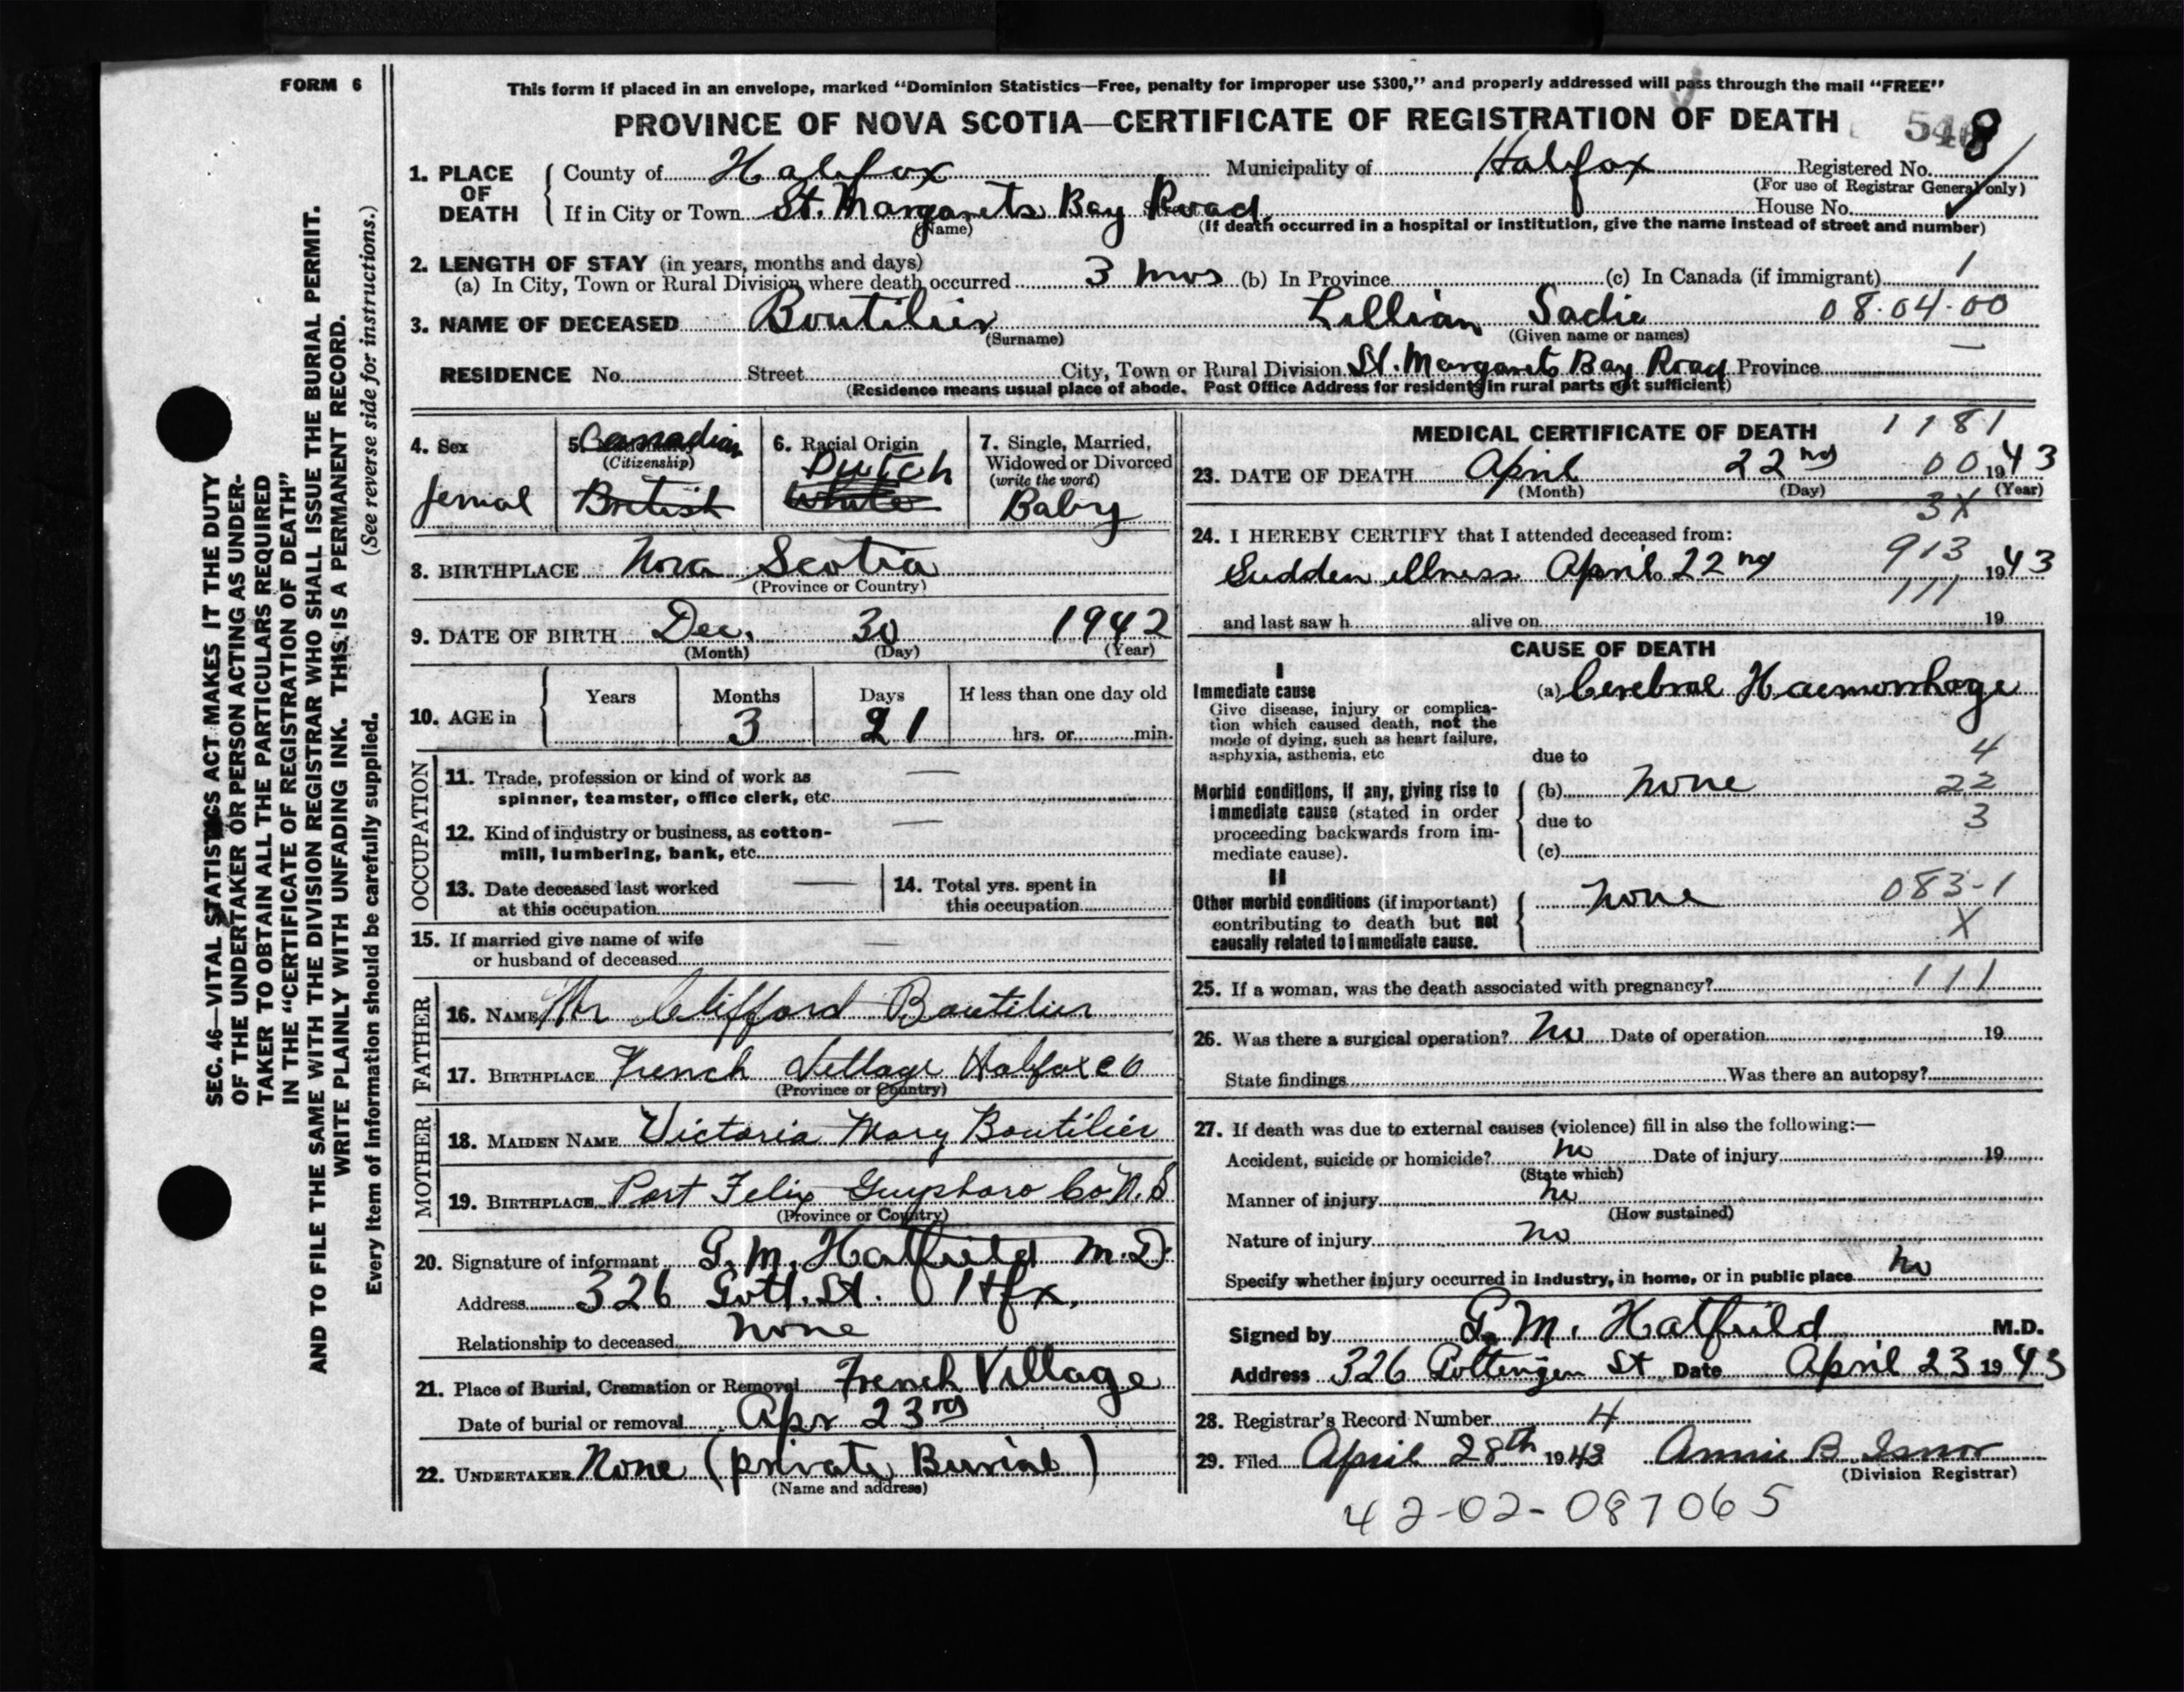 FORM 6
This form if placed in an envelope, marked "Dominion Statistics—Free, penalty for improper use $300," and properly addressed will pass through the mail "FREE"
PROVINCE OF NOVA SCOTIA—CERTIFICATE OF REGISTRATION OF DEATH
SEC. 46—VITAL STATISTICS ACT MAKES IT THE DUTY
OF THE UNDERTAKER OR PERSON ACTING AS UNDER-
TAKER TO OBTAIN ALL THE PARTICULARS REQUIRED
IN THE "CERTIFICATE OF REGISTRATION OF DEATH"
AND TO FILE THE SAME WITH THE DIVISION REGISTRAR WHO SHALL ISSUE THE BURIAL PERMIT.
WRITE PLAINLY WITH UNFADING INK. THIS IS A PERMANENT RECORD.
Every item of information should be carefully supplied. (See reverse side for instructions.)
1. PLACE OF DEATH County of Halifax Municipality of Halifax Registered No.
(For use of Registrar General only)
If in City or Town St. Margarets Bay Road House No.
(Name) (If death occurred in a hospital or institution, give the name instead of street and number)
2. LENGTH OF STAY (in years, months and days)
(a) In City, Town or Rural Division where death occurred 3 mos (b) In Province (c) In Canada (if immigrant) 1
3. NAME OF DECEASED Boutilier Lillian Sadie 08-04-00
(Surname) (Given name or names)
RESIDENCE No. Street City, Town or Rural Division St. Margarets Bay Road Province —
(Residence means usual place of abode. Post Office Address for residents in rural parts not sufficient)
4. Sex
femal
5. Canadian
(Citizenship)
British
6. Racial Origin
Dutch
White
7. Single, Married,
Widowed or Divorced
(write the word)
Baby
8. BIRTHPLACE Nova Scotia
(Province or Country)
9. DATE OF BIRTH Dec. 30 1942
(Month) (Day) (Year)
10. AGE in Years Months Days If less than one day old
3 21 hrs. or min.
OCCUPATION
11. Trade, profession or kind of work as —
spinner, teamster, office clerk, etc.
12. Kind of industry or business, as cotton- —
mill, lumbering, bank, etc.
13. Date deceased last worked — 14. Total yrs. spent in
at this occupation this occupation
15. If married give name of wife —
or husband of deceased
FATHER
16. NAME Mr Clifford Boutilier
17. BIRTHPLACE French Village Halifax Co
(Province or Country)
MOTHER
18. MAIDEN NAME Victoria Mary Boutilier
19. BIRTHPLACE Port Felix Guysboro Co N.S
(Province or Country)
20. Signature of informant G. M. Hatfield M.D.
Address 326 Gott. St. Hfx.
Relationship to deceased none
21. Place of Burial, Cremation or Removal French Village
Date of burial or removal Apr 23rd
22. UNDERTAKER None (private Burial)
(Name and address)
MEDICAL CERTIFICATE OF DEATH 1181
23. DATE OF DEATH April 22nd 00 1943
(Month) (Day) (Year)
3X
24. I HEREBY CERTIFY that I attended deceased from:
913
Sudden illness April 22nd 1943
111
and last saw h alive on 19
CAUSE OF DEATH
I
Immediate cause (a) Cerebral Haemorrhage
Give disease, injury or complica-
tion which caused death, not the
mode of dying, such as heart failure,
asphyxia, asthenia, etc due to 4
Morbid conditions, if any, giving rise to (b) None 22
immediate cause (stated in order due to 3
proceeding backwards from im-
mediate cause). (c)
II
Other morbid conditions (if important) none 083-1
contributing to death but not X
causally related to immediate cause.
25. If a woman, was the death associated with pregnancy? 111
26. Was there a surgical operation? No Date of operation 19
State findings Was there an autopsy?
27. If death was due to external causes (violence) fill in also the following:—
Accident, suicide or homicide? no Date of injury 19
(State which)
Manner of injury no
(How sustained)
Nature of injury no
Specify whether injury occurred in industry, in home, or in public place no
Signed by G. M. Hatfield M.D.
Address 326 Gottingen St Date April 23 1943
28. Registrar's Record Number 4
29. Filed April 28th 1943 Annie B. Isnor
(Division Registrar)
42-02-087065